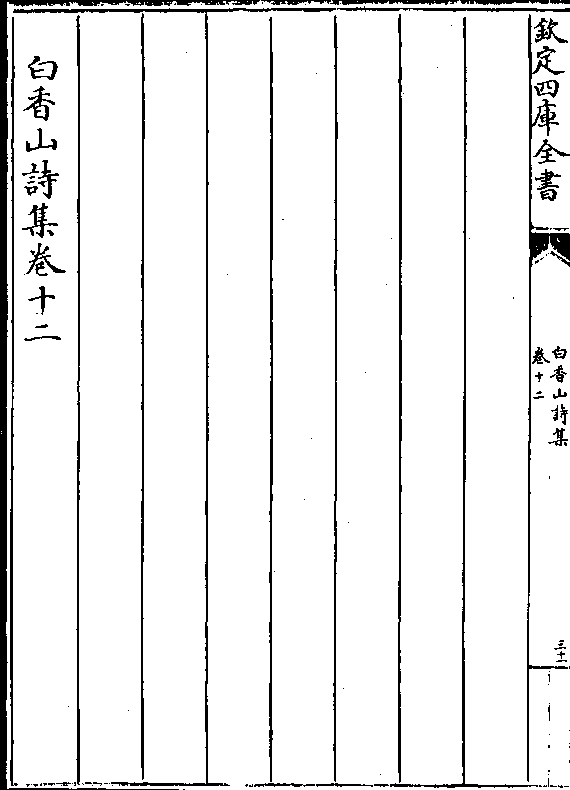 欽定四庫全書
白香山詩集
卷十二
三十一
白香山詩集卷十二